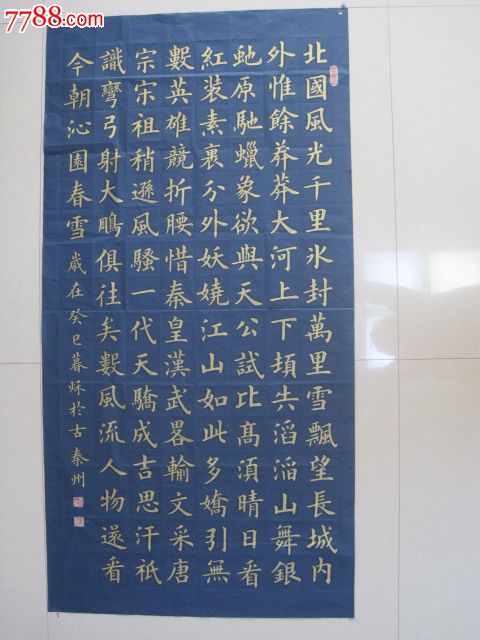 7788.com
北國風光千里氷封萬里雪飄望長城内
外惟餘莽莽大河上下頓失滔滔山舞銀
虵原馳蠟象欲與天公試比髙湏晴日看
紅装素裹分外妖嬈江山如此多嬌引無
數英雄競折腰惜秦皇漢武畧輸文采唐
宗宋祖稍遜風騷一代天驕成吉思汗祇
識彎弓射大鵰俱往矣數風流人物還看
今朝沁園春雪歲在癸巳暮秌於古秦州